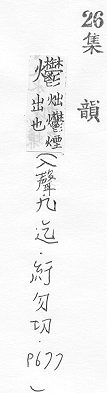 26
集韻
爩炪爩煙出也(入聲九迄．紆勿切．P677)